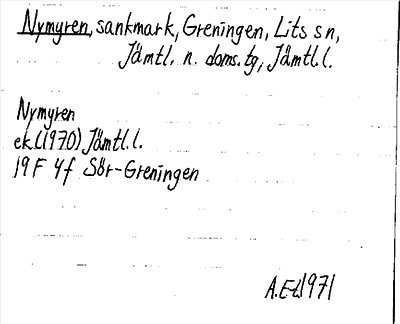 Nymyren, sankmark, Greningen, Lits sn,
Jämtl. n. doms.tg, Jämtl.l.
Nymyren
ek.(1970) Jämtl.l.
19 F 4f Sör-Greningen
A.E-L 1971